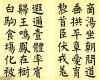 商湯坐朝問道
垂拱平章愛育
黎首臣伏戎羌
遐邇壹體率賓
歸王鳴鳳在樹
白駒食場化被